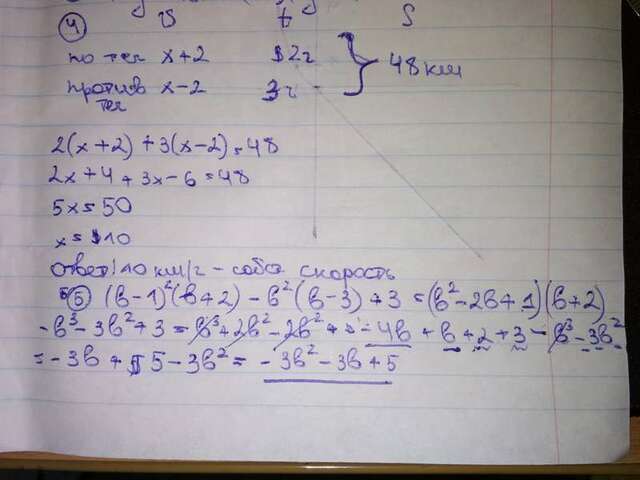 ④ v t S
по теч x+2 2ч
против x-2 3ч 48км
теч
2(x+2)+3(x-2)=48
2x+4+3x-6=48
5x=50
x=10
ответ: 10 км/ч - собст скорость
⑤ (b-1)²(b+2)-b²(b-3)+3=(b²-2b+1)(b+2)
-b³-3b²+3=b³+2b²-2b²-4b+b+2+3-b³-3b²
=-3b+5-3b²=-3b²-3b+5